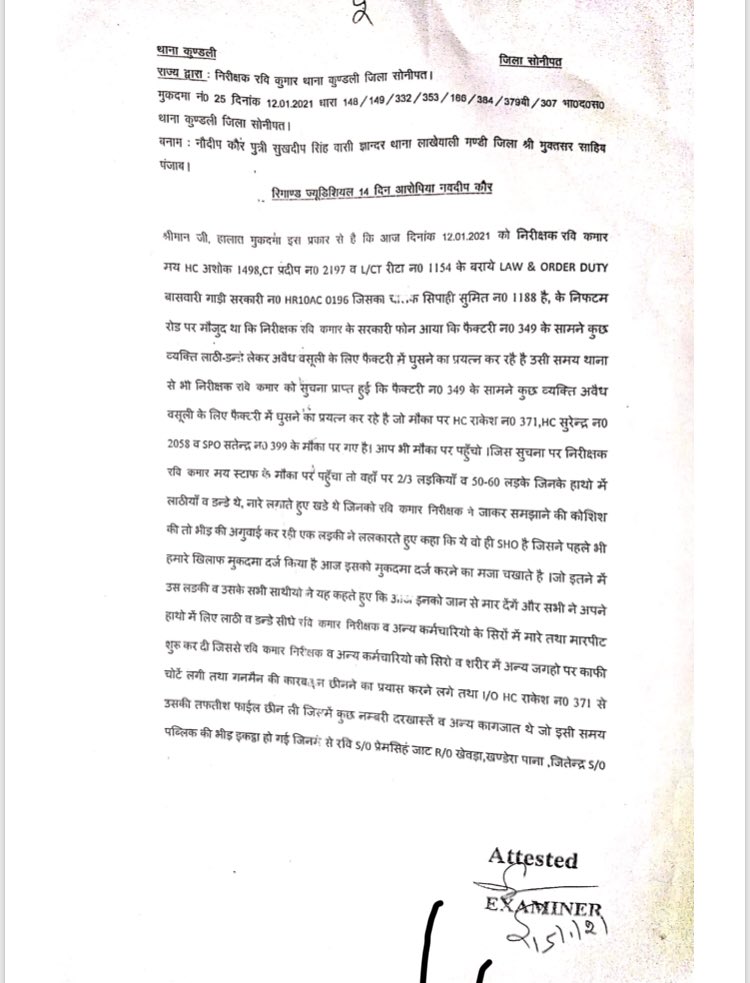 थाना कुण्डली जिला सोनीपत
राज्य द्वारा : निरीक्षक रवि कुमार थाना कुण्डली जिला सोनीपत।
मुकदमा नं0 25 दिनांक 12.01.2021 धारा 148/149/332/353/186/384/379बी/307 भा०द०स०
थाना कुण्डली जिला सोनीपत।
बनाम : नौदीप कौर पुत्री सुखदीप सिंह वासी झान्दर थाना लाखेवाली मण्डी जिला श्री मुक्तसर साहिब
पंजाब।
रिमाण्ड ज्यूडिशियल 14 दिन आरोपिया नवदीप कौर
श्रीमान जी, हालात मुकदमा इस प्रकार से है कि आज दिनांक 12.01.2021 को निरीक्षक रवि कमार
मय HC अशोक 1498,CT प्रदीप न0 2197 व L/CT रीटा न0 1154 के बराये LAW & ORDER DUTY
बासवारी गाड़ी सरकारी न0 HR10AC 0196 जिसका सिपाही सुमित न0 1188 है, के निफटम
रोड पर मौजूद था कि निरीक्षक रवि कमार के सरकारी फोन आया कि फैक्टरी न0 349 के सामने कुछ
व्यक्ति लाठी-डन्डे लेकर अवैध वसूली के लिए फैक्टरी में घुसने का प्रयत्न कर रहे है उसी समय थाना
से भी निरीक्षक रवि कमार को सुचना प्राप्त हुई कि फैक्टरी न0 349 के सामने कुछ व्यक्ति अवैध
वसूली के लिए फैक्टरी में घुसने का प्रयत्न कर रहे है जो मौका पर HC राकेश न0 371,HC सुरेन्द्र न0
2058 व SPO सतेन्द्र न0 399 के मौका पर गए है। आप भी मौका पर पहुँचो ।जिस सुचना पर निरीक्षक
रवि कमार मय स्टाफ के मौका पर पहुँचा तो वहाँ पर 2/3 लड़कियाँ व 50-60 लडके जिनके हाथो में
लाठीयाँ व डन्डे थे, नारे लगाते हुए खडे थे जिनको रवि कमार निरीक्षक ने जाकर समझाने की कोशिश
की तो भीड़ की अगुवाई कर रही एक लड़की ने ललकारते हुए कहा कि ये वो ही SHO है जिसने पहले भी
हमारे खिलाफ मुकदमा दर्ज किया है आज इसको मुकदमा दर्ज करने का मजा चखाते है ।जो इतने में
उस लडकी व उसके सभी साथीयो ने यह कहते हुए कि आज इनको जान से मार देंगें और सभी ने अपने
हाथो में लिए लाठी व डन्डे सीधे रवि कमार निरीक्षक व अन्य कर्मचारियो के सिरों में मारे तथा मारपीट
शुरु कर दी जिससे रवि कमार निरीक्षक व अन्य कर्मचारियो को सिरो व शरीर में अन्य जगहो पर काफी
चोटें लगी तथा गनमैन की छीनने का प्रयास करने लगे तथा I/O HC राकेश न0 371 से
उसकी तफतीश फाईल छीन ली जिसमें कुछ नम्बरी दरखास्तें व अन्य कागजात थे जो इसी समय
पब्लिक की भीड़ इकट्ठा हो गई जिनमे से रवि S/O प्रेमसिहं जाट R/O खेवड़ा,खण्डेरा पाना ,जितेन्द्र S/O
Attested
EXAMINER